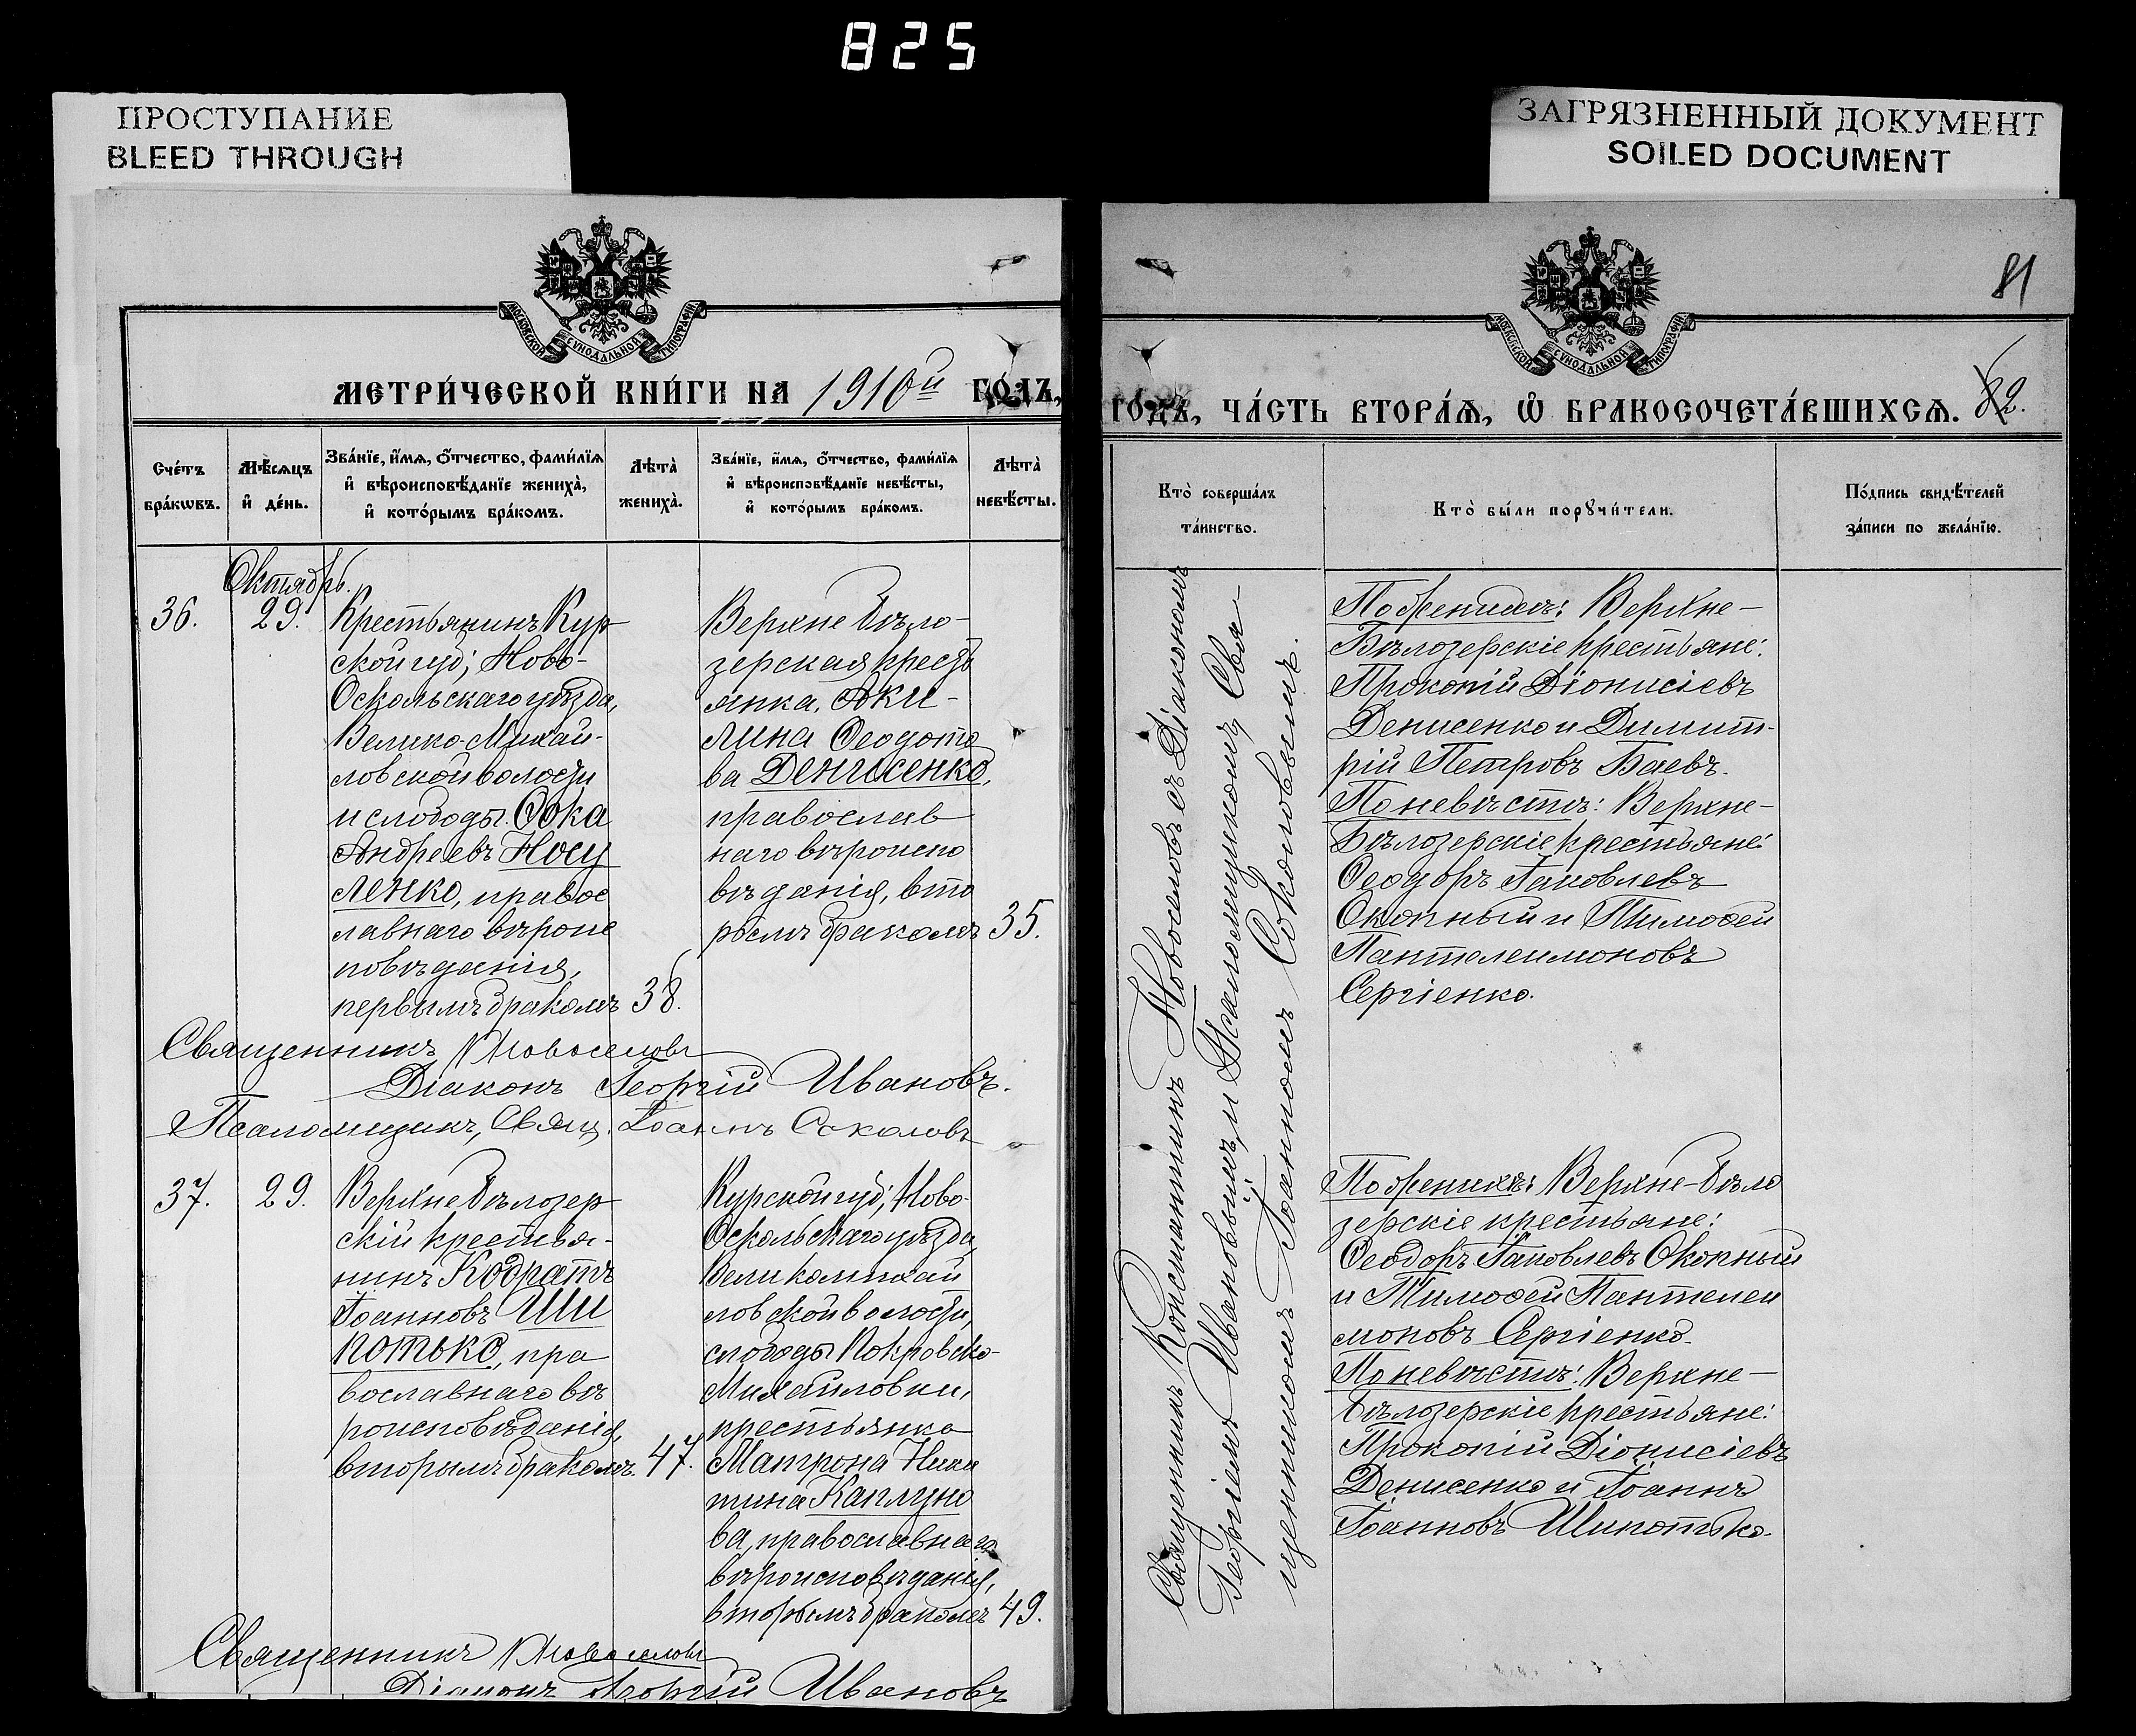 825
ПРОСТУПАНИЕ
BLEED THROUGH
ЗАГРЯЗНЕННЫЙ ДОКУМЕНТ
SOILED DOCUMENT
МОСКОВСКОЙ СѴНОДАЛЬНОЙ ТИПОГРАФІИ
МЕТРИ́ЧЕСКОЙ КНИ́ГИ НА 1910й ГО́ДЪ,
Сче́тъ бра́кѡвъ.
Мѣ́сяцъ и҆ де́нь.
Зва́нїе, и҆́мѧ, ѻ҆́тчество, фами́лїѧ
и҆ вѣроисповѣ́данїе жениха̀,
и҆ кото́рымъ бра́комъ.
Лѣта̀ жениха̀.
Зва́нїе, и҆́мѧ, ѻ҆́тчество, фами́лїѧ
и҆ вѣроисповѣ́данїе невѣ́сты,
и҆ кото́рымъ бра́комъ.
Лѣта̀ невѣ́сты.
Октябрь.
36.
29.
Крестьянинъ Кур
ской губ; Ново-
Оскольскаго уѣзда,
Велико-Михай-
ловской волости
и слободы Ѳока
Андреевъ Носу
ленко, правос
лавнаго вѣроис
повѣданія,
первымъ бракомъ
38.
Верхне Бѣло-
зерская кресть
янка, Аки-
лина Ѳеодото
ва Денисенко,
православ
наго вѣроиспо
вѣданія, вто
рымъ бракомъ
35.
Священникъ К Новоселовъ
Діаконъ Георгій Ивановъ.
Псаломщикъ, Свящ. Іоаннъ Соколовъ
37.
29.
Верхне Бѣлозер
скій крестья-
нинъ Кодратъ
Іоанновъ Ши
потько, пра
вославнаго вѣ
роисповѣданія,
вторымъ бракомъ.
47.
Курской губ; Ново-
Оскольскаго уѣзда,
Великомихай
ловской волости,
слободы Покровско-
Михайловки,
крестьянка
Матрона Ники
тина Каплуно
ва, православнаго
вѣроисповѣданія,
вторымъ бракомъ
49.
Священникъ К Новоселовъ
Діаконъ Георгій Ивановъ
81
МОСКОВСКОЙ СѴНОДАЛЬНОЙ ТИПОГРАФІИ
ГО́ДЪ, ЧА́СТЬ ВТОРА́Ѧ, Ѡ҆ БРАКОСОЧЕТА́ВШИХСѦ. 82.
Кто̀ соверша́лъ
та́инство.
Кто̀ бы́ли порꙋчи́тели.
По́дпись свидѣ́телей
за́писи по жела́нїю.
Священникъ Константинъ Новоселовъ съ Діакономъ
Георгіемъ Ивановымъ, и Псаломщикомъ, Свя-
щенникомъ Іоанномъ Соколовымъ.
По женихѣ: Верхне-
Бѣлозерскіе крестьяне:
Прокопій Діонисіевъ
Денисенко и Димит-
рій Петровъ Баевъ.
По невѣстѣ: Верхне-
Бѣлозерскіе крестьяне:
Ѳеодоръ Іаковлевъ
Окопный и Тимоѳей
Пантелеимоновъ
Сергіенко.
По женихѣ: Верхне-Бѣло
зерскіе крестьяне:
Ѳеодоръ Іаковлевъ Окопный
и Тимоѳей Пантелеи
моновъ Сергіенко.
По невѣстѣ: Верхне-
Бѣлозерскіе крестьяне:
Прокопій Діонисіевъ
Денисенко и Іоаннъ
Іоанновъ Шипотько.